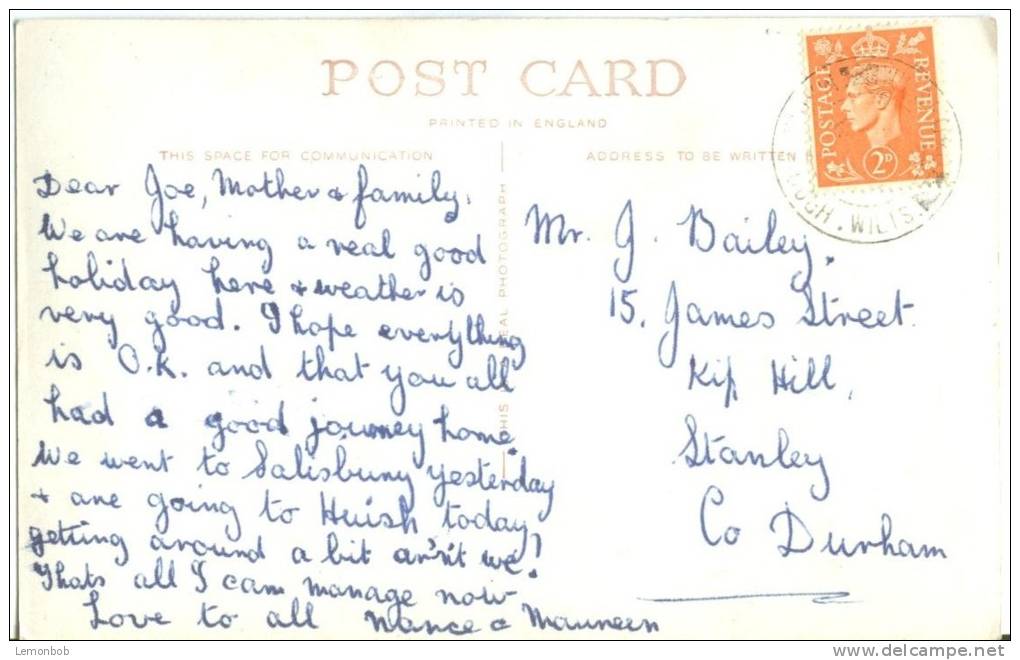 POST CARD
PRINTED IN ENGLAND
THIS SPACE FOR COMMUNICATION
ADDRESS TO BE WRITTEN
POSTAGE
REVENUE
2D
WILTS.
Dear Joe, Mother & family,
We are having a real good
holiday here & weather is
very good. I hope everything
is O.K. and that you all
had a good journey home.
We went to Salisbury yesterday
& are going to Huish today,
getting around a bit ar'nt we!
Thats all I can manage now
Love to all Nance & Maureen
THIS REAL PHOTOGRAPH
Mr. J. Bailey.
15, James Street.
Kip Hill,
Stanley
Co Durham
Lemonbob
delcampe.net